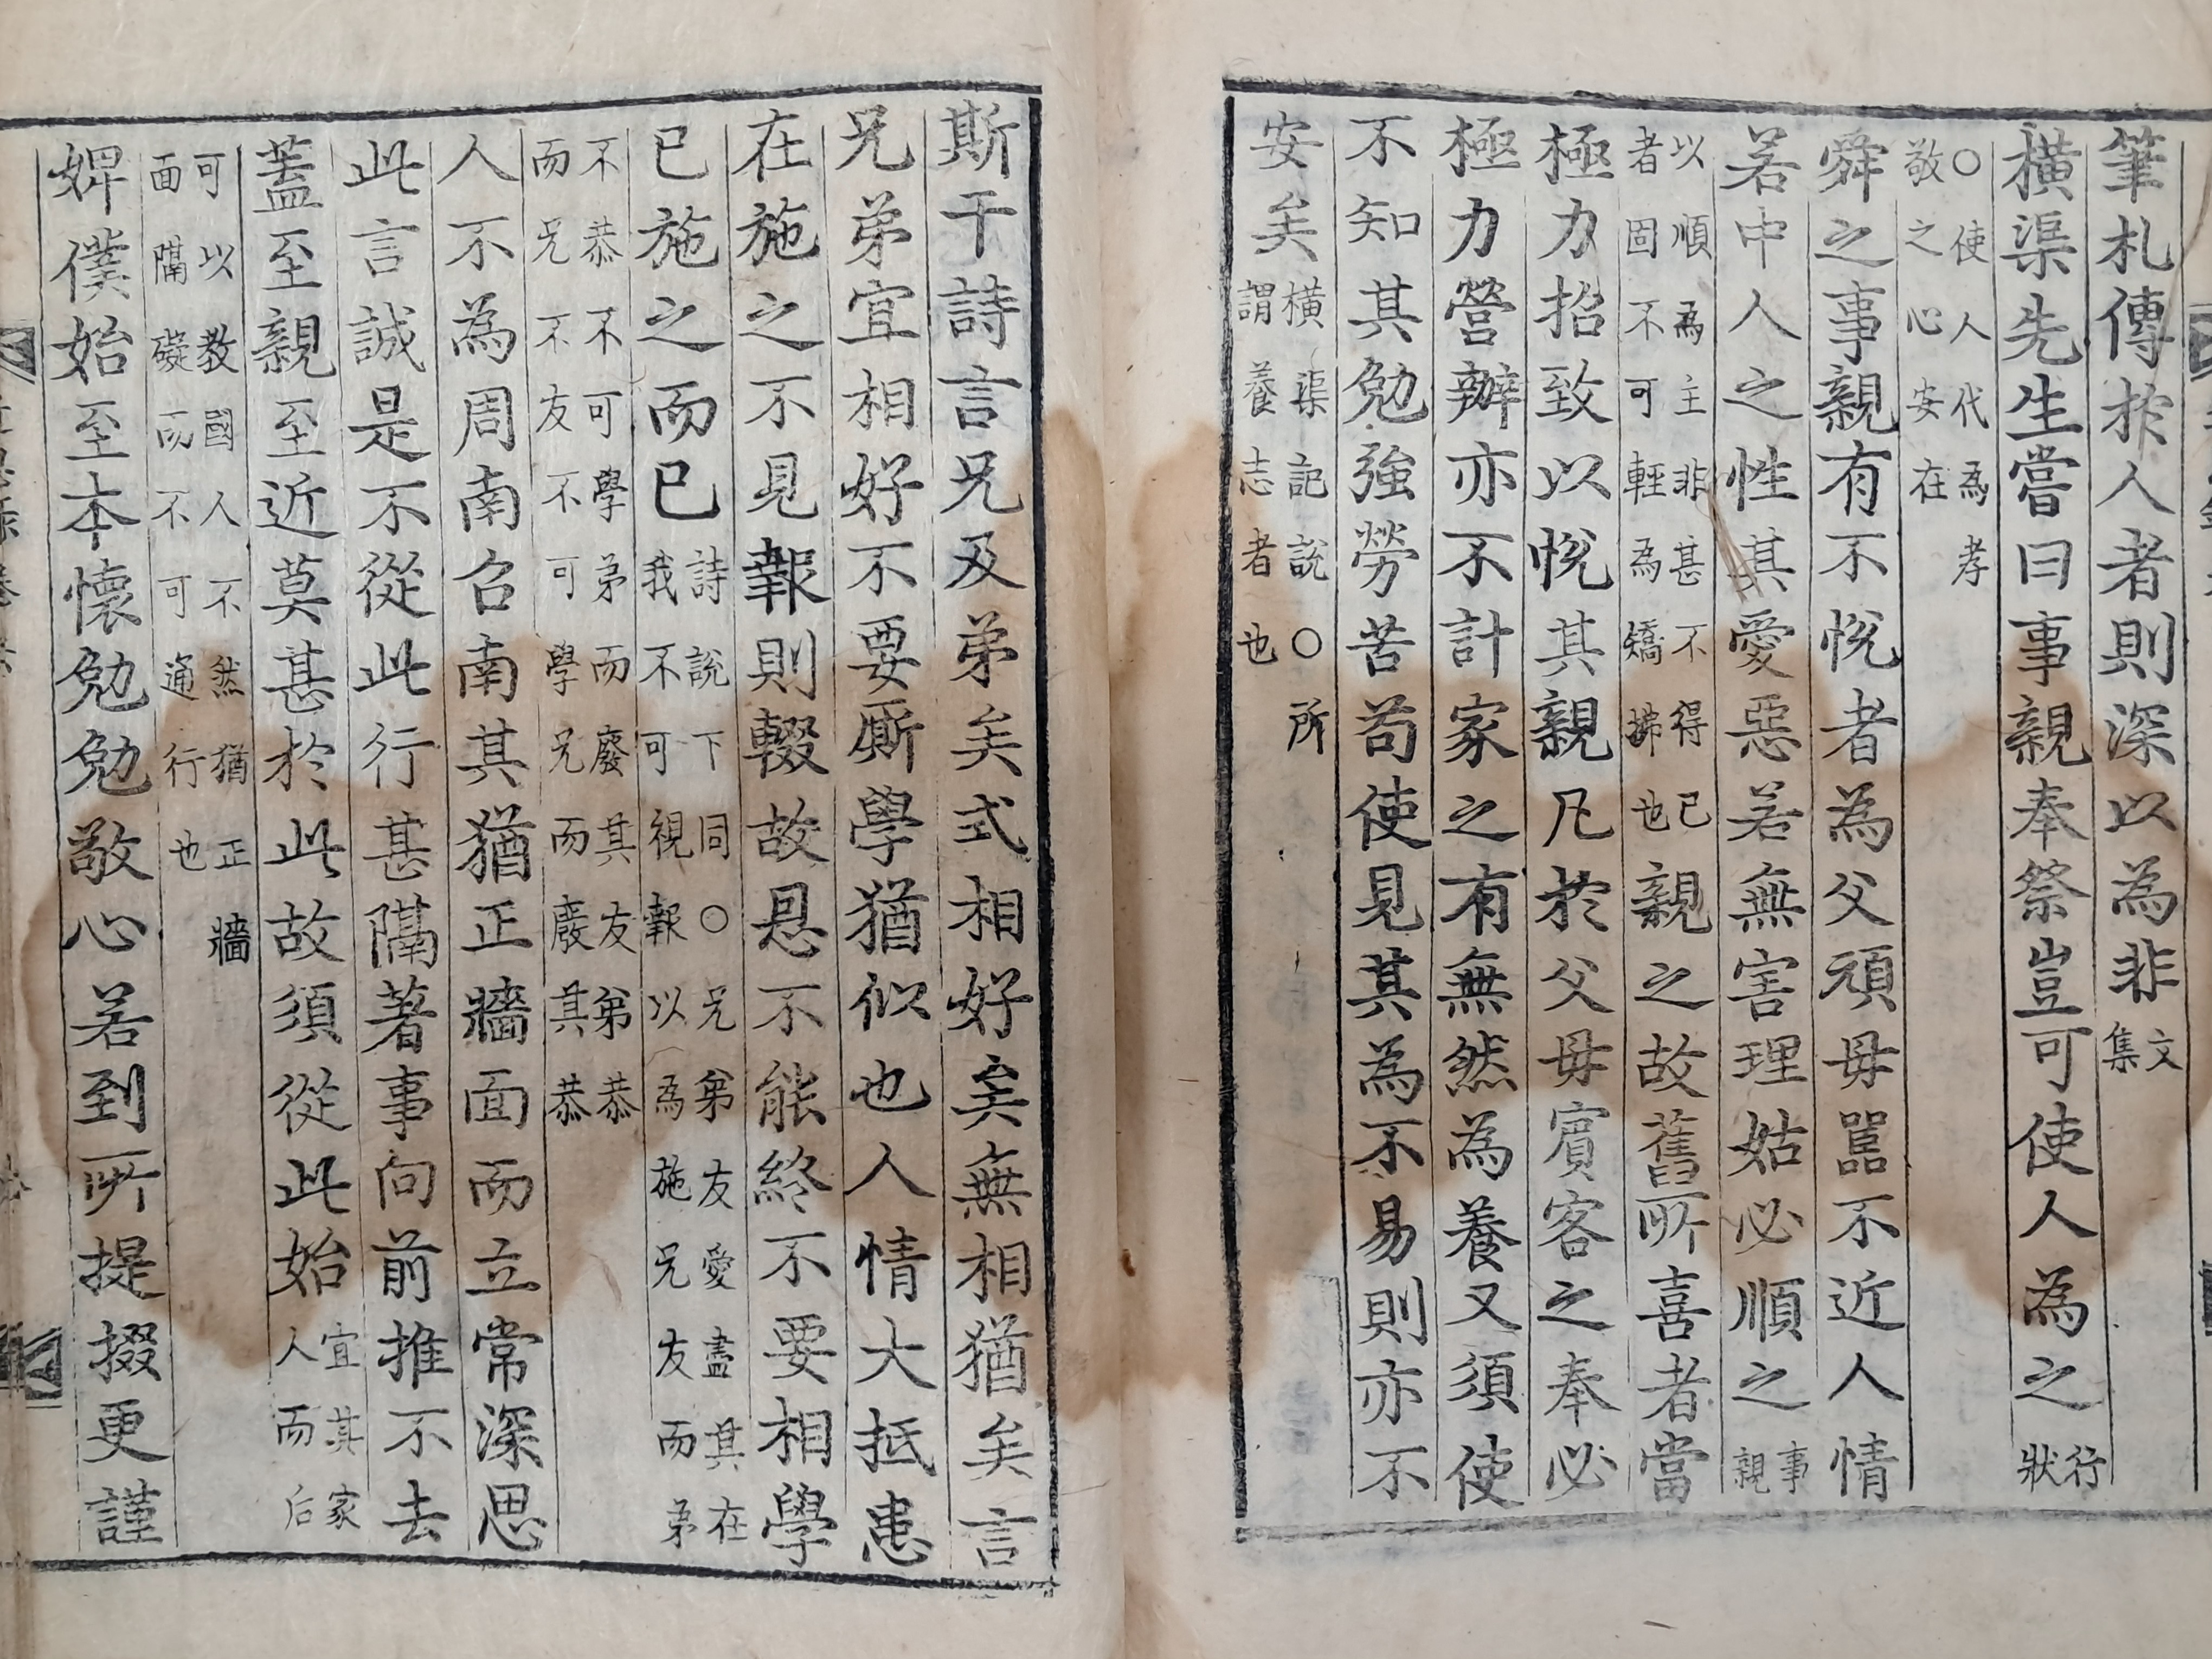 筆札傳於人者則深以為非文集
橫渠先生嘗曰事親奉祭豈可使人為之行狀
○使人代為孝敬之心安在
舜之事親有不悅者為父頑母嚚不近人情
若中人之性其愛惡若無害理姑必順之事親
以順為主非甚不得已者固不可輕為矯拂也親之故舊所喜者當
極力招致以悅其親凡於父母賓客之奉必
極力營辦亦不計家之有無然為養又須使
不知其勉強勞苦苟使見其為不易則亦不
安矣橫渠記說○所謂養志者也
斯干詩言兄及弟矣式相好矣無相猶矣言
兄弟宜相好不要厮學猶似也人情大抵患
在施之不見報則輟故恩不能終不要相學
已施之而已詩說下同○兄弟友愛盡其在我不可視報以為施兄友而弟
不恭不可學弟而廢其友弟恭而兄不友不可學兄而廢其恭
人不為周南召南其猶正牆面而立常深思
此言誠是不從此行甚隔著事向前推不去
蓋至親至近莫甚於此故須從此始宜其家人而后
可以教國人不然猶正牆面隔礙而不可通行也
婢僕始至本懷勉勉敬心若到所提掇更謹